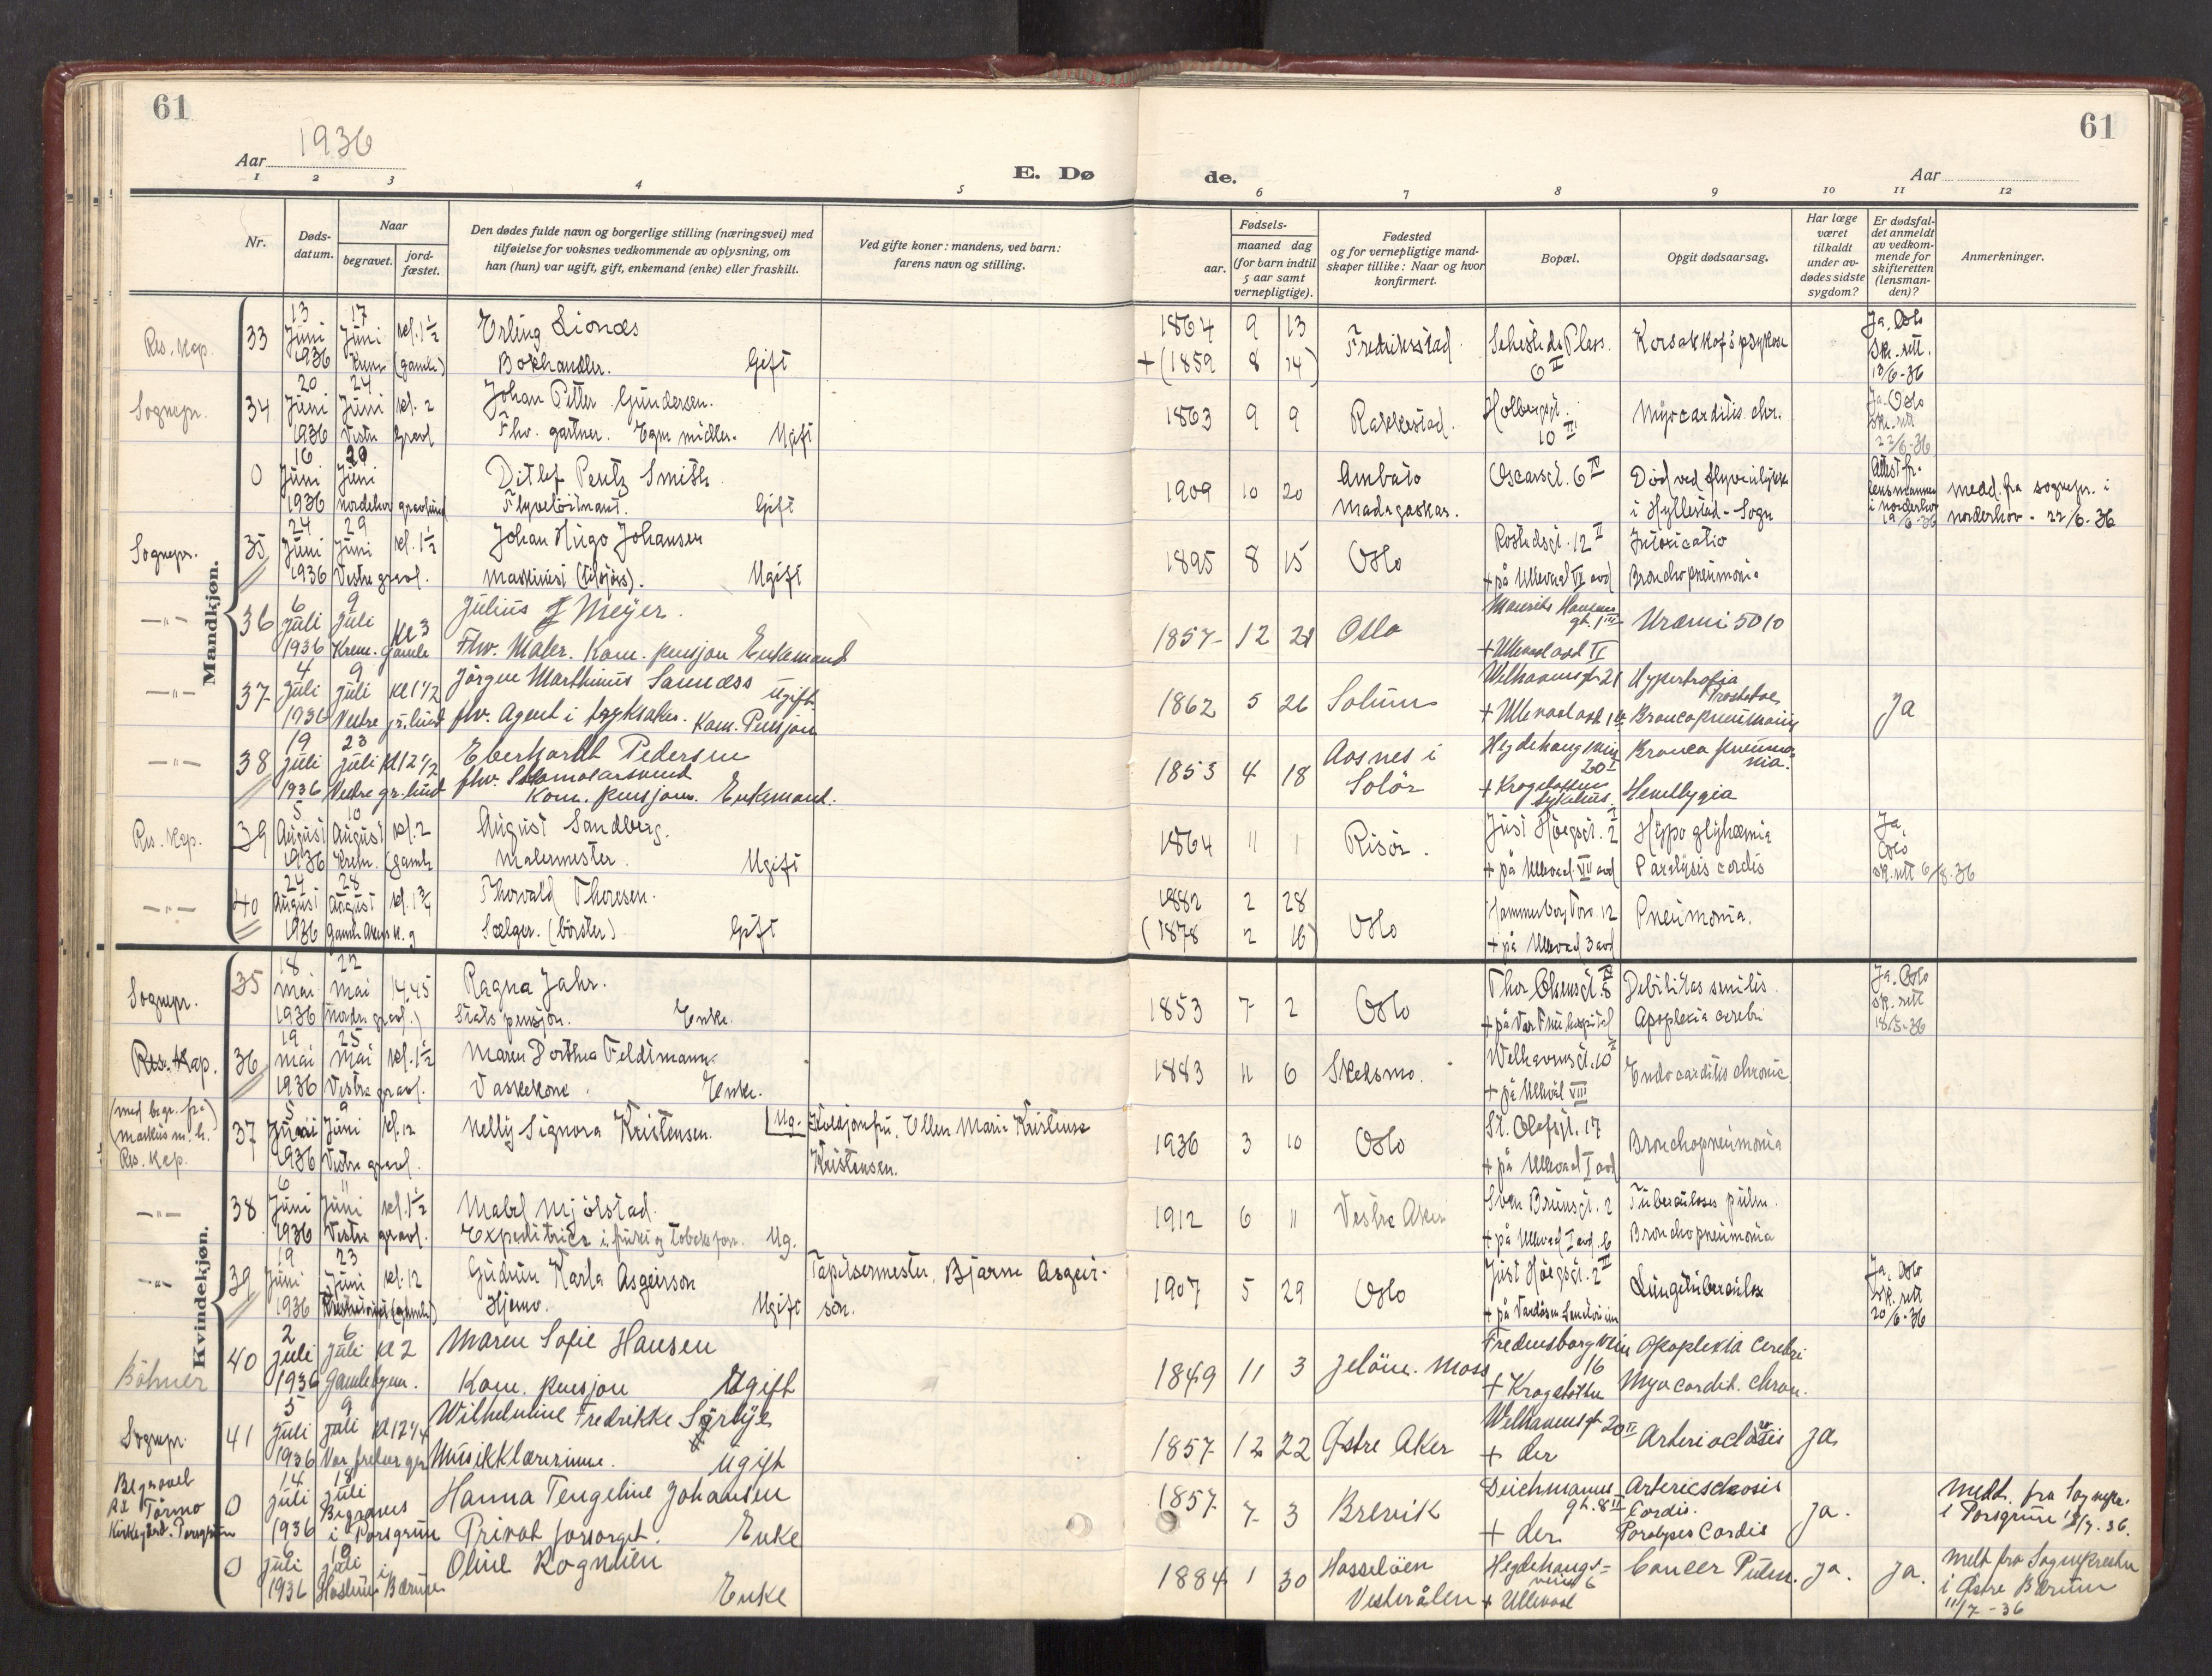 61
61
1936
Aar
E. Dø
de.
Aar
1 2 3 4 5 6 7 8 9 10 11 12
Nr.
Døds-datum.
Naar
begravet.
jord-fæstet.
Den dødes fulde navn og borgerlige stilling (næringsvei) med
tilføielse for voksnes vedkommende av oplysning, om
han (hun) var ugift, gift, enkemand (enke) eller fraskilt.
Ved gifte koner: mandens, ved barn:
farens navn og stilling.
Fødsels-
aar.
maaned dag
(for barn indtil
5 aar samt
vernepligtige).
Fødested
og for vernepligtige mand-
skaper tillike: Naar og hvor
konfirmert.
Bopæl.
Opgit dødsaarsag.
Har læge
været
tilkaldt
under av-
dødes sidste
sygdom?
Er dødsfal-
det anmeldt
av vedkom-
mende for
skifteretten
(lensman-
den)?
Anmerkninger.
Mandkjøn.
Res. Kap. 33 13 Juni 1936 17 Juni Krem. (gamle) kl. 1½ Erling Lionæs 1864 9 13 Fredriksstad. Sehesteds Plass. 6 II Korsakkofs psykose Ja. Oslo Sk. rett. 18/6-36
Bokhandler. Gift + (1859 8 14)
Sognepr. 34 20 Juni 1936 24 Juni Vestre gravl. kl. 2 Johan Petter Gundersen. 1863 9 9 Rakkestad. Holbergsgt. 10 III Myocarditis chr. Ja. Oslo Sk. rett 22/6-36
Fhv. gartner. Egne midler. Ugift
0 16 Juni 1936 29 Juni Norderhov gravlund Ditlef Pentz Smith 1909 10 20 Ambato Madagaskar. Oscarsgt. 6 IV Død ved flyveulykke i Hyllestad - Sogn Attest fr. lensmannen i Norderhov 19/6-36 Medd. fra sognepr. i Norderhov - 22/6-36
Flyveløitnant. Gift
Sognepr. 35 24 Juni 1936 29 Juni Vestre gravl. kl. 1½ Johan Hugo Johansen 1895 8 15 Oslo Rostedsgt. 12 II + på Ullevaal VI avd Intoxicatio Bronchopneumonia
Maskinist (tilsjøss). Ugift
-"- 36 6 Juli 1936 9 Juli Krem. gamle Kl 3 Julius J Meyer. 1857 12 21 Oslo Maurits Hansens gt. 1 III + Ullevaal avd II Uræmi 5010
Fhv. Maler. Kom. pensjon Enkemand
-"- 37 4 Juli 1936 9 Juli Vestre gr. lund kl 1½ Jörgen Marthinius Sannæss Ugift 1862 5 26 Solum Welhavensgt 21 + Ullevaal avd Hypertrofia Prostatae Broncopneumoni Ja
fhv. Agent i trykksaker. Kom. Pensjon
-"- 38 19 Juli 1936 23 Juli Vestre gr. lund Kl 12½ Eberhardt Pedersen 1853 4 18 Aasnes i Solör Hegdehaugsvein 20 I + Krogstøtten sykehus. Bronco pneumonia.
Kom. pensjon. Enkemand.
Res. Kap. 39 5 August 1936 10 August Krem. (gamle kl. 2 August Sandberg. 1864 11 1 Risör. Just Høegsgt. 2 I + på Ullevaal VII avd Hypoglyhæmia Paralysis cordis Ja, Oslo sk. rett 6/8-36
Malermester. Ugift
-"- 40 24 August 1936 28 August Gamle Akers k. g kl. 1¾ Thorvald Thoresen. 1882 2 28 Oslo Hammersborg Torv. 12 + på Ullevaal 3 avd Pneumonia.
Sælger. (börster) Gift (1878 2 16)
Kvindekjøn.
Sognepr. 35 18 Mai 1936 22 Mai (Nordre gravl.) 14,45 Ragna Jahr. 1853 7 2 Oslo Thor Olsensgt. 5 IV + på Vor Frue hospital Debilitas senilis. Apoplexia cerebri Ja. Oslo sk. rett 18/5-36
Stats pensjon. Enke.
Res. Kap. 36 19 Mai 1936 25 Mai Vestre gravl. kl. 1½ Maren Dorthea Feldtmann. 1883 11 6 Skedsmo. Welhavensgt. 10 + på Ullevål VIII Endocarditis chronic.
Vaskekone. Enke.
(med begr. fra Markus m. h.) Res. Kap. 37 5 Juni 1936 9 Juni Vestre gravl. kl. 12 Nelly Signora Kristensen. Ug. Ellen Marie Kristense 1936 3 10 Oslo St. Olafsgt. 17 + på Ullevaal I avd Bronchopneumonia
Kristensen.
-"- 38 6 Juni 1936 11 Juni Vestre gravl. kl. 1½ Mabel Mjölstad. 1912 6 11 Vestre Aker Sven Brunsgt. 2 + på Ullevaal I avd. 6 Tuberculoses pulm. Bronchopneumonia
Expeditrice i frukt og tobaksforr. Ug.
-"- 39 19 Juni 1936 23 Juni Krematoriet (gamle) kl. 12 Gudrun Karla Asgeirson Tapetsermester, Bjarne Asgeir- 1907 5 29 Oslo Just Höegsgt. 2 II + på Vardåsen Sanatorium Lungetuberkulose Ja. Oslo sk. rett 20/6-36
Hjemv. Ugift son.
Böhner 40 2 Juli 1936 6 Juli Gamlebyen. kl 2 Maren Sofie Hansen 1849 11 3 Jelöen. Moss Fredensborgvein 16 + Krogstøtten Apoplexia Cerebri Myocardit. chron.
Kom. pensjon Ugift
Sognepr. 41 5 Juli 1936 9 Juli Vor frelser gr. kl 12¼ Wilhelmine Fredrikke Sörbye 1857 12 22 Østre Aker Welhavensgt 20 II + der Ja
Musikklærerinne. Ugift
Begravet på Törmo Kirkegård. Porsgrunn 0 14 Juli 1936 18 Juli Begraves i Porsgrunn Hanna Tengeline Johansen 1857 7 3 Brevik Deichmans gt. 8 II + der Artericsclerosis Cordis. Paralyses Cordis Ja. Meldt. fra Sognepr. i Porsgrunn 36.
Privat forsorget. Enke
0 6 Juli 1936 10 Juli i Haslum Bærum Oline Rognlien 1884 1 30 Hasselöen Vesterålen Hegdehaugs-veien 6 + Ullevaal Cancer Pulm. Ja. Ja. Meldt fra Sognepresten i Østre Bærum 11/7-36
Enke